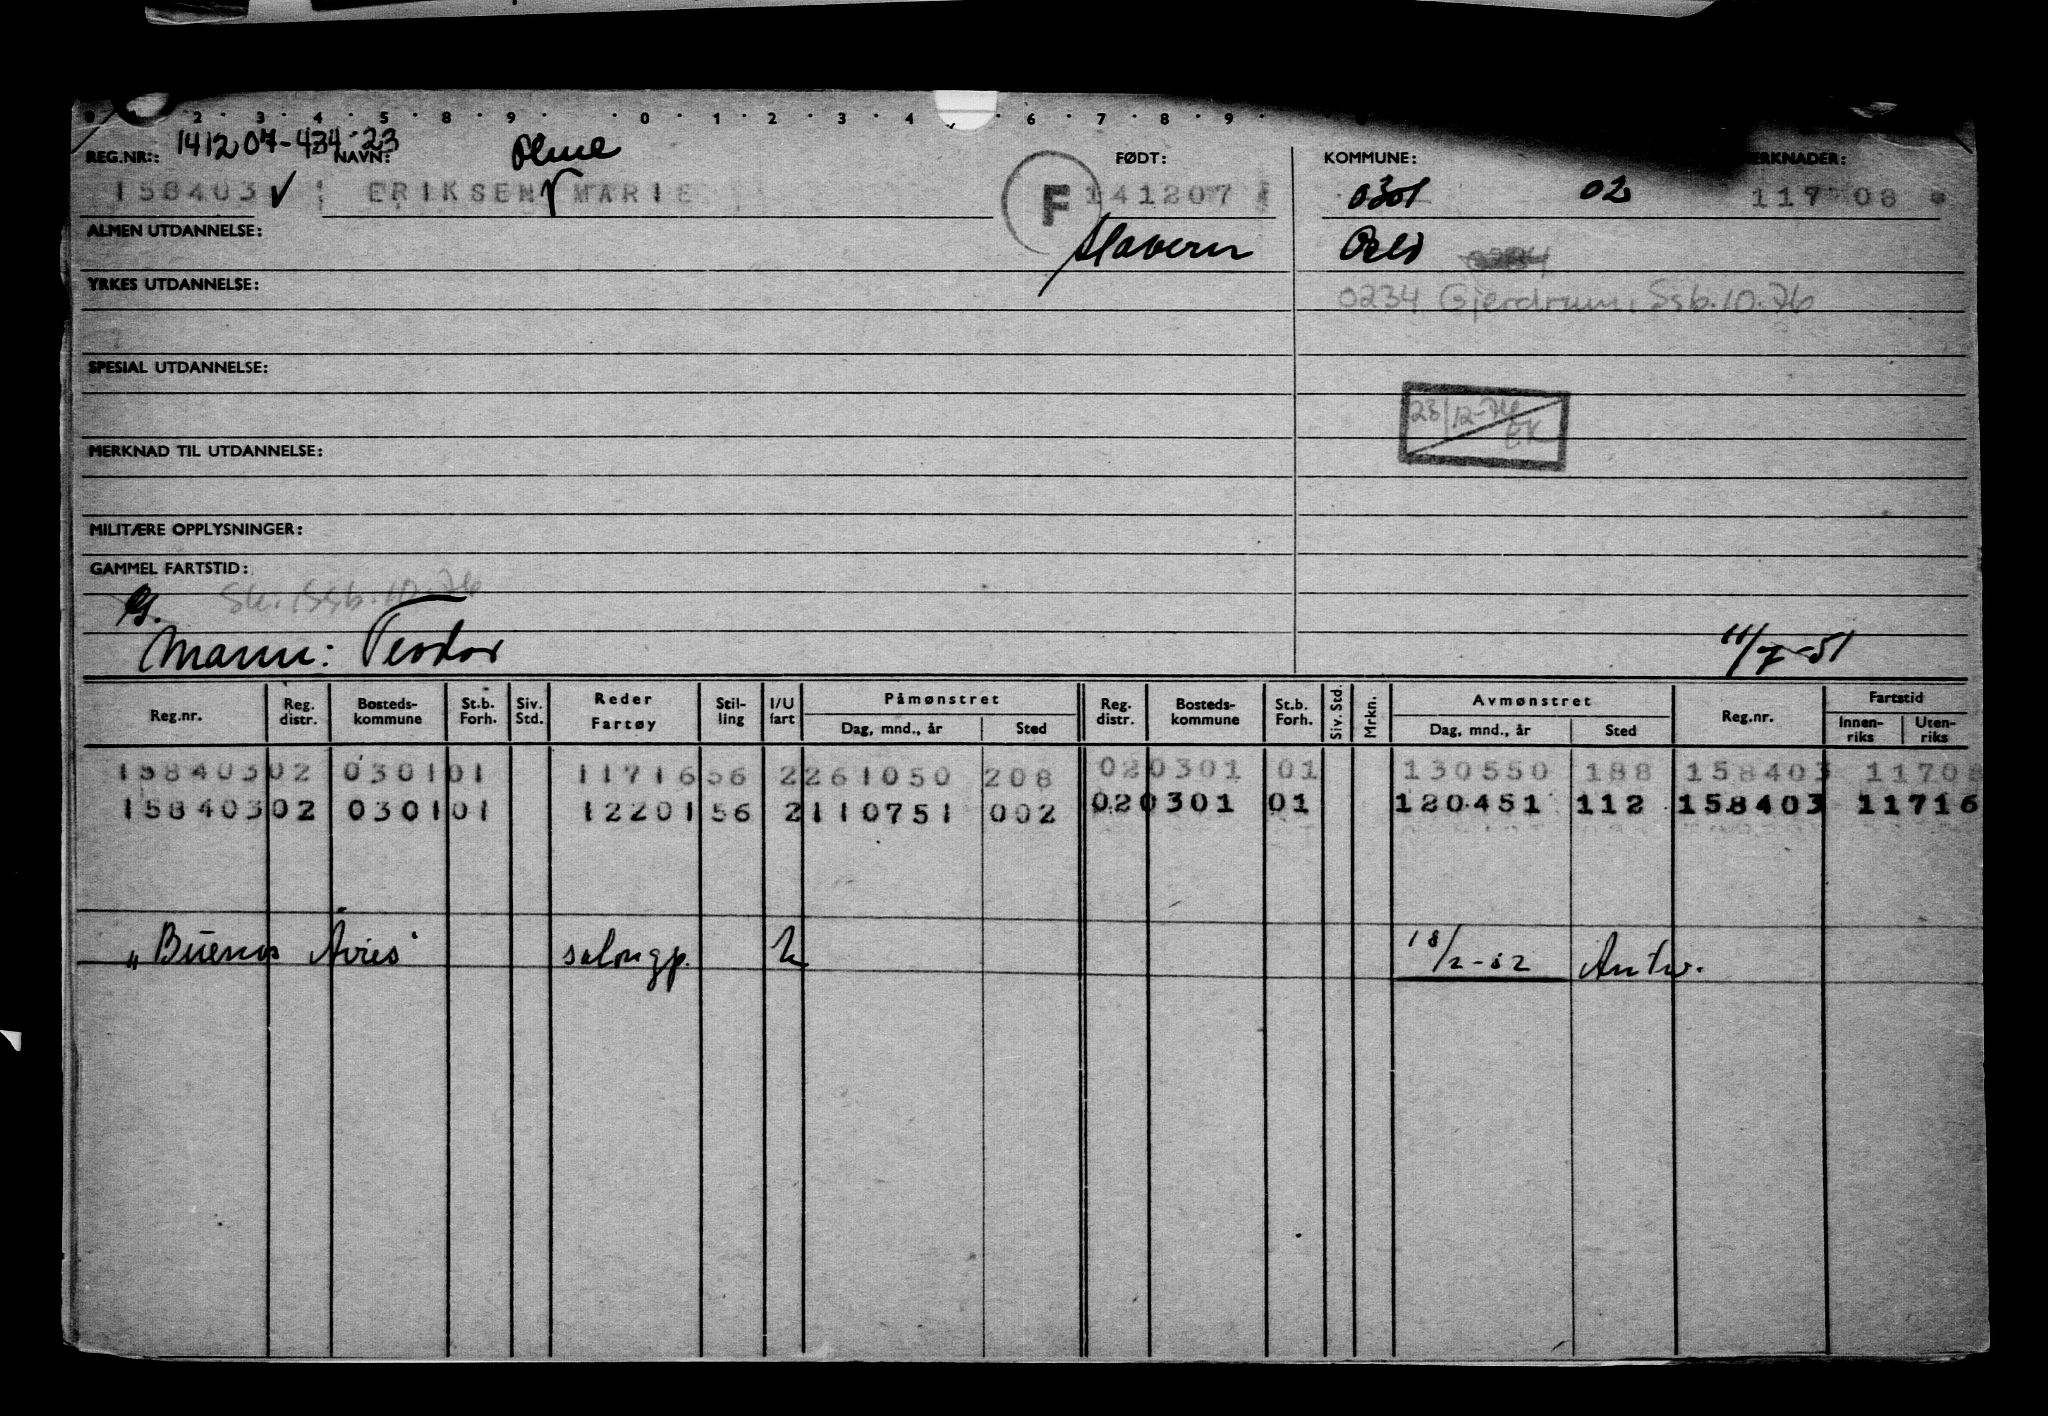 2 · 3 · 4 · 5 · 8 · 9 · 0 · 1 · 2 · 3 · 4 6 · 7 · 8 · 9
141207-434-23
REG.NR.: NAVN: FØDT: KOMMUNE: MERKNADER:
158403 ✓ ERIKSEN MARIE F 141207 0301 02 117 08
ALMEN UTDANNELSE: Stavern Oslo
YRKES UTDANNELSE: 0234 Gjerdrum, Ssb. 10.76
SPESIAL UTDANNELSE:
23/12-76 EK
MERKNAD TIL UTDANNELSE:
MILITÆRE OPPLYSNINGER:
GAMMEL FARTSTID:
Sk. Ssb. 10.76
G.
Mann: Teodor 11/7-51
Reg.nr. Reg. distr. Bosteds-kommune St.b. Forh. Siv. Std. Reder Fartøy Stil-ling I/U fart Påmønstret Dag, mnd., år Sted Reg. distr. Bosteds-kommune St.b. Forh. Siv. Std. Mrkn. Avmønstret Dag, mnd., år Sted Reg.nr. Fartstid Innen-riks Uten-riks
158403 02 0301 01 11716 56 2 261050 208 02 0301 01 130550 188 158403 11708
158403 02 0301 01 12201 56 2 110751 002 02 0301 01 120451 112 158403 11716
"Buenos Aires" salongp. U 18/2-52 Antw.